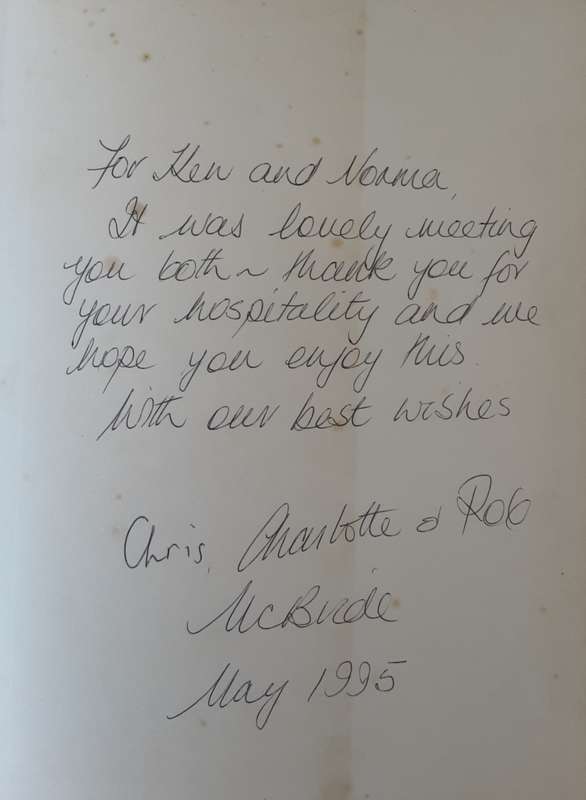 For Ken and Norma,
It was lovely meeting
you both ~ thank you for
your hospitality and we
hope you enjoy this.
With our best wishes
Chris, Charlotte & Rob
McBride
May 1995